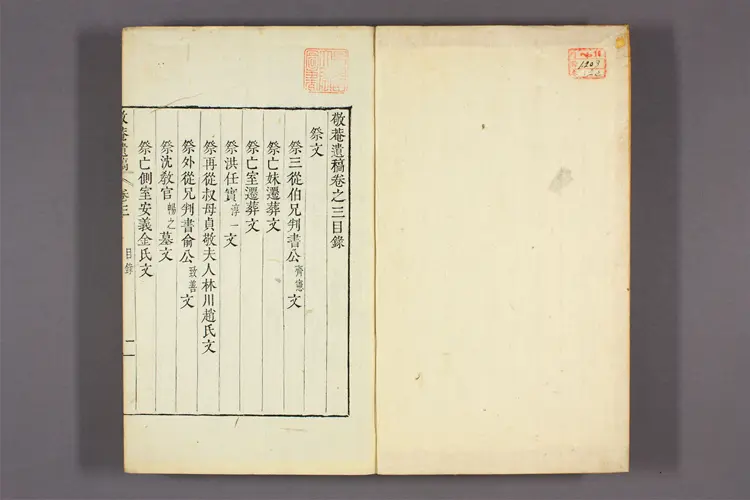 敬菴遺稿卷之三目錄
祭文
祭三從伯兄判書公齊悳文
祭亡妹遷葬文
祭亡室遷葬文
祭洪任實淳一文
祭再從叔母貞敬夫人林川趙氏文
祭外從兄判書俞公致善文
祭沈敎官暢之墓文
祭亡側室安義金氏文
敬菴遺稿 卷三 目錄 一
1903